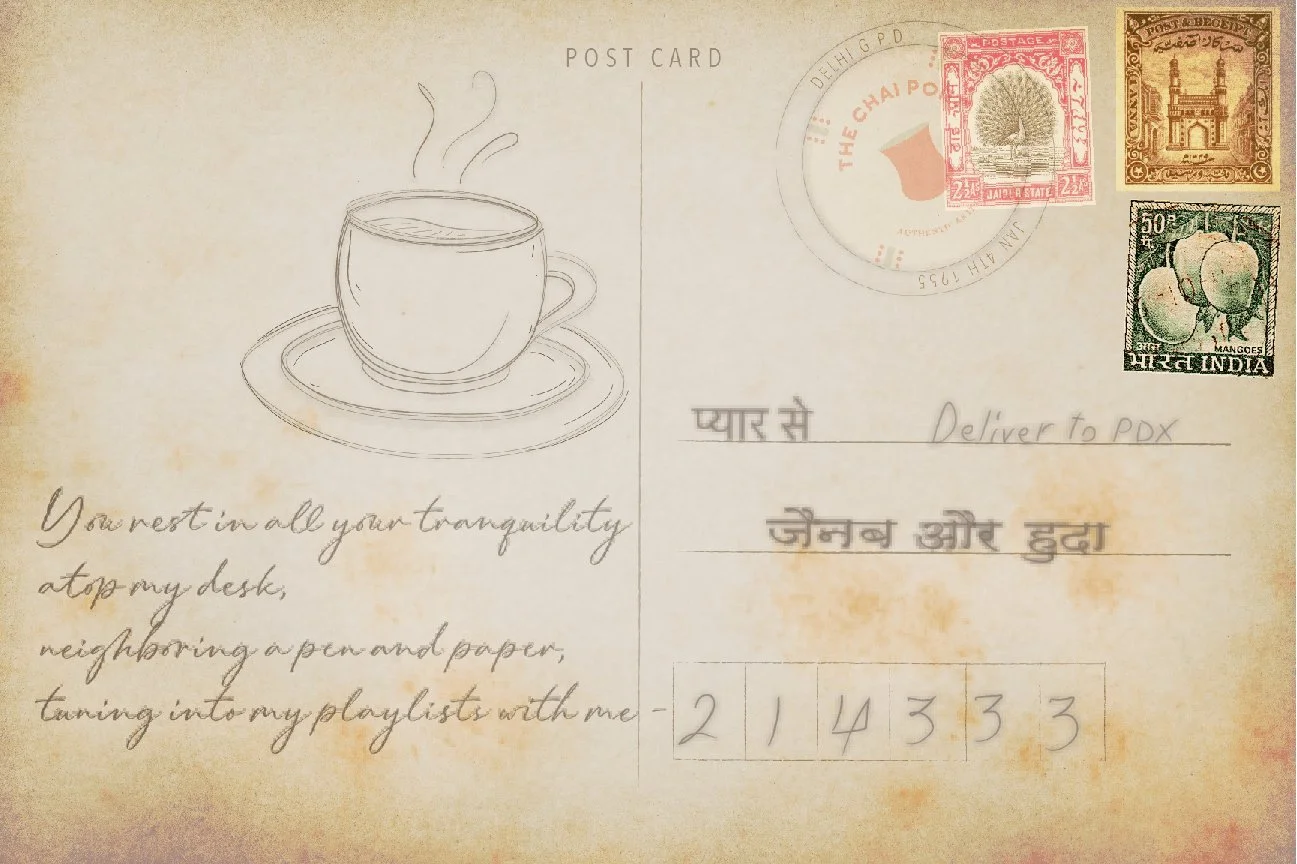 POST CARD
You rest in all your tranquility
atop my desk,
neighboring a pen and paper,
tuning into my playlists with me -
DELHI G P D
THE CHAI PO
JAN 4TH 1955
POSTAGE
2½ A JAIPUR STATE 2½ A
POST & RECEIPT
ANNA
50
MANGOES
भारत INDIA
प्यार से Deliver to PDX
जैनब और हुदा
2 1 4 3 3 3